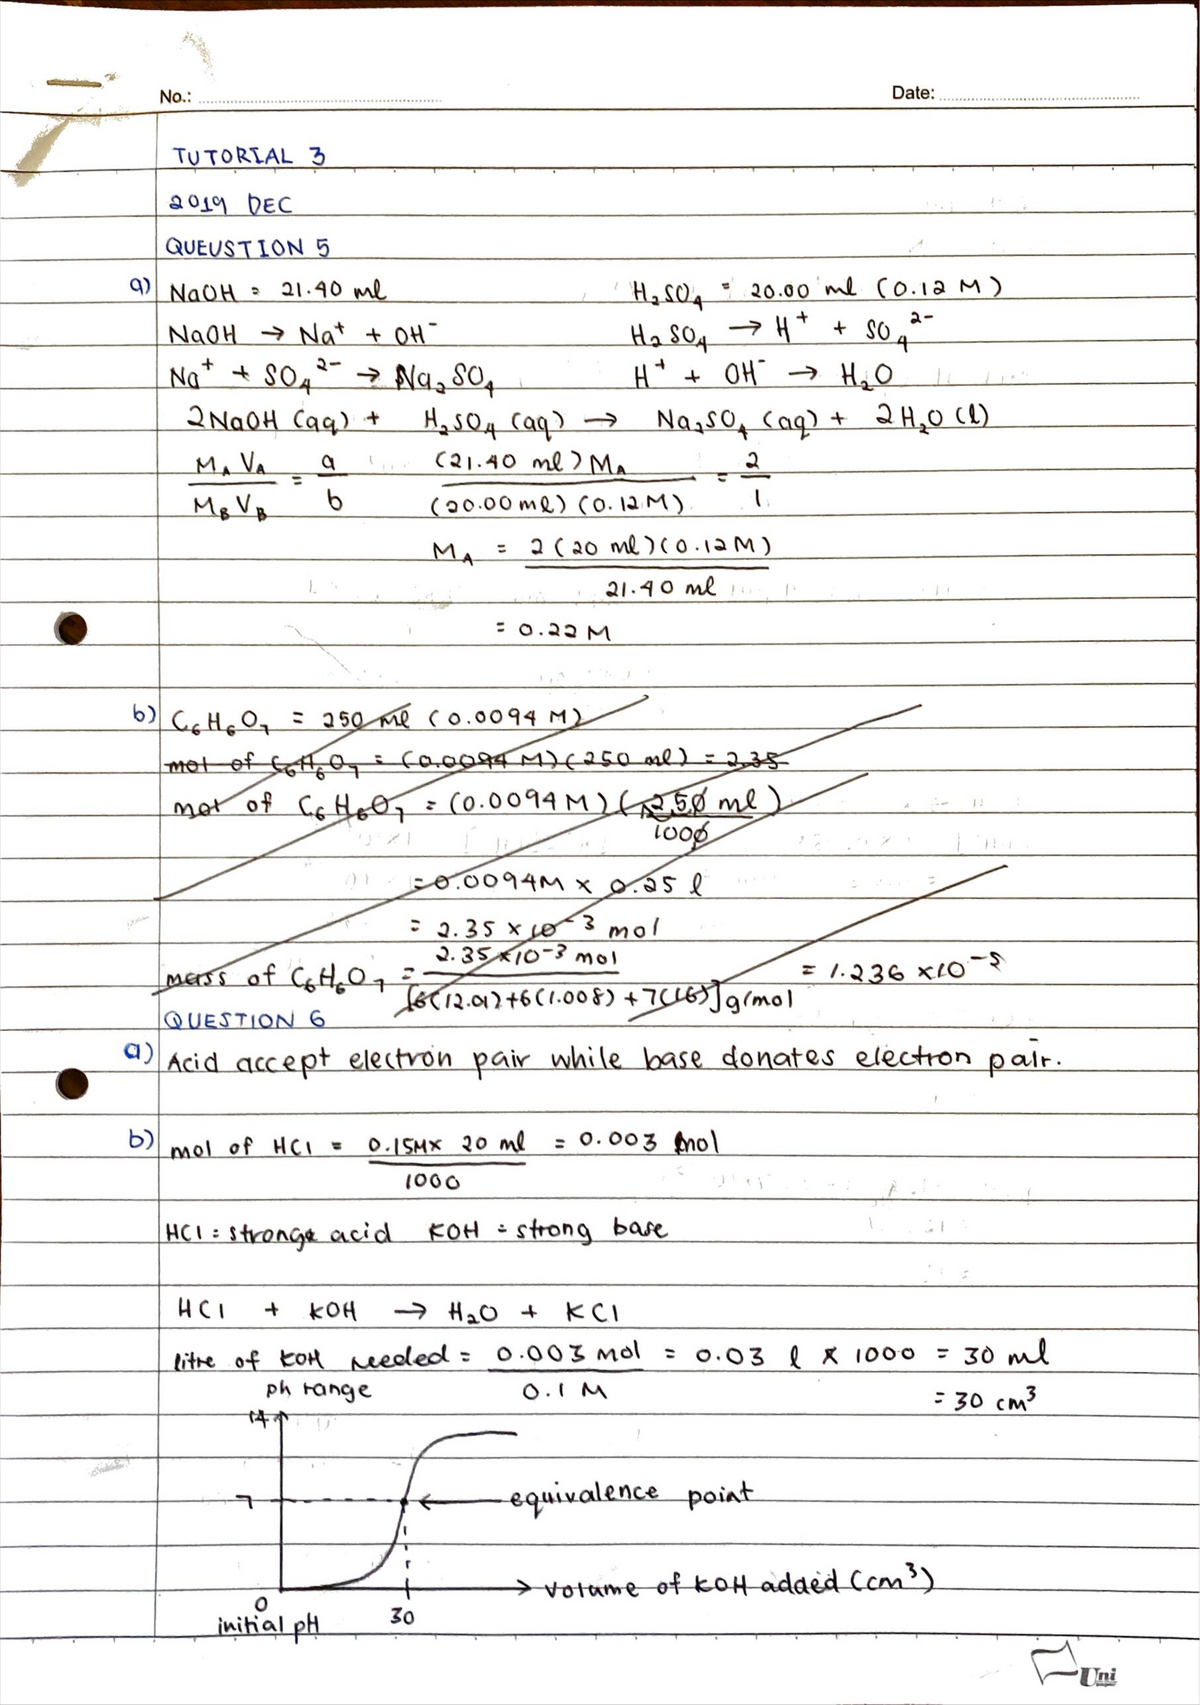 No.: Date:
TUTORIAL 3
2019 DEC
QUEUSTION 5
a) NaOH = 21.40 ml H₂SO₄ = 20.00 ml (0.12 M)
NaOH → Na⁺ + OH⁻ H₂SO₄ → H⁺ + SO₄²⁻
Na⁺ + SO₄²⁻ → Na₂SO₄ H⁺ + OH⁻ → H₂O
2NaOH (aq) + H₂SO₄ (aq) → Na₂SO₄ (aq) + 2H₂O (l)
M_A V_A / M_B V_B = a / b (21.40 ml) M_A / (20.00 ml) (0.12 M) = 2 / 1
M_A = 2 (20 ml) (0.12 M) / 21.40 ml
= 0.22 M
b) C₆H₆O₇ = 250 ml (0.0094 M)
mol of C₆H₆O₇ = (0.0094 M) (250 ml) = 2.35
mol of C₆H₆O₇ = (0.0094 M) (250 ml / 1000)
= 0.0094 M × 0.25 l
= 2.35 × 10⁻³ mol
mass of C₆H₆O₇ = 2.35 × 10⁻³ mol / [6(12.01) + 6(1.008) + 7(16)] g/mol = 1.236 × 10⁻⁵
QUESTION 6
a) Acid accept electron pair while base donates electron pair.
b) mol of HCl = 0.15M × 20 ml / 1000 = 0.003 mol
HCl = stronge acid KOH = strong base
HCl + KOH → H₂O + KCl
litre of KOH needed = 0.003 mol / 0.1 M = 0.03 l × 1000 = 30 ml
= 30 cm³
ph range
14
7 equivalence point
volume of KOH added (cm³)
0 30
initial pH
Uni